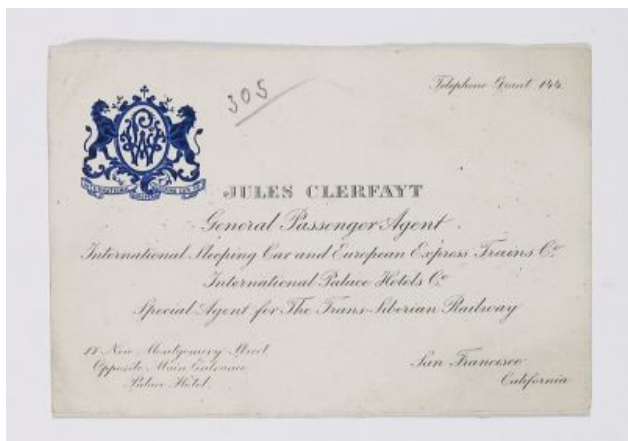 Telephone Grant 144.
305
JULES CLERFAYT
General Passenger Agent
International Sleeping Car and European Express Trains Co
International Palace Hotels Co
Special Agent for The Trans-Siberian Railway
17 New Montgomery Street
Opposite Main Entrance
Palace Hotel.
San Francisco
California